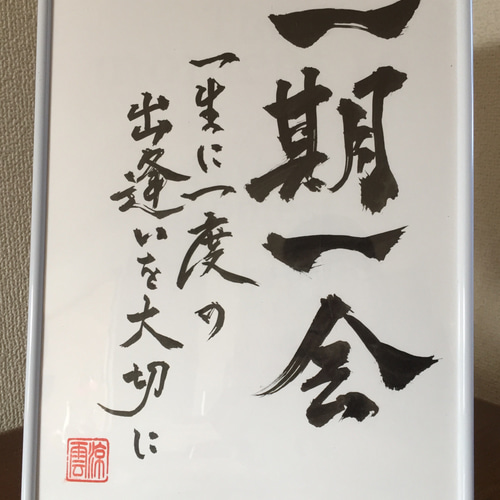 一期一会
一生に一度の
出逢いを大切に
涼雲